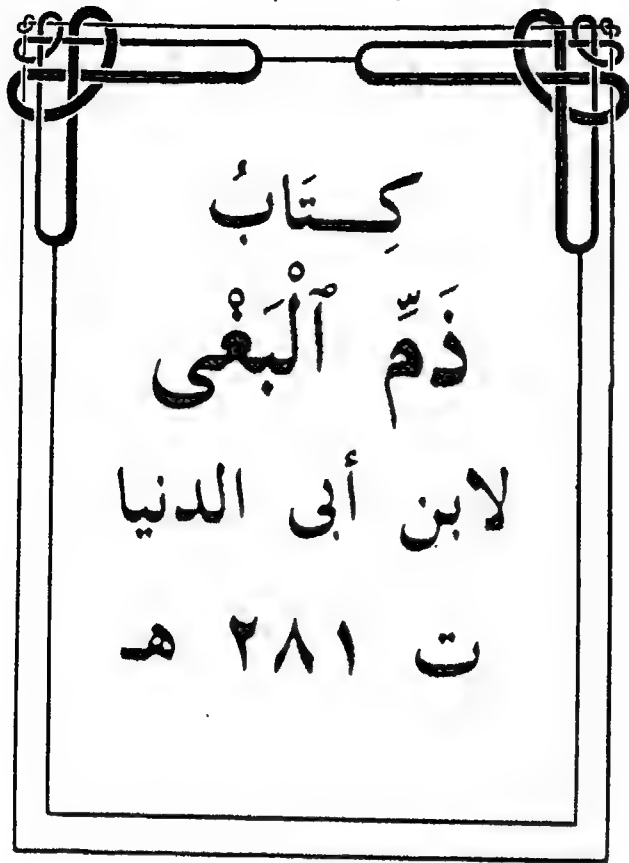 كِــتَابُ
ذَمِّ ٱلْبَغْى
لابن أبى الدنيا
ت ٢٨١ هـ